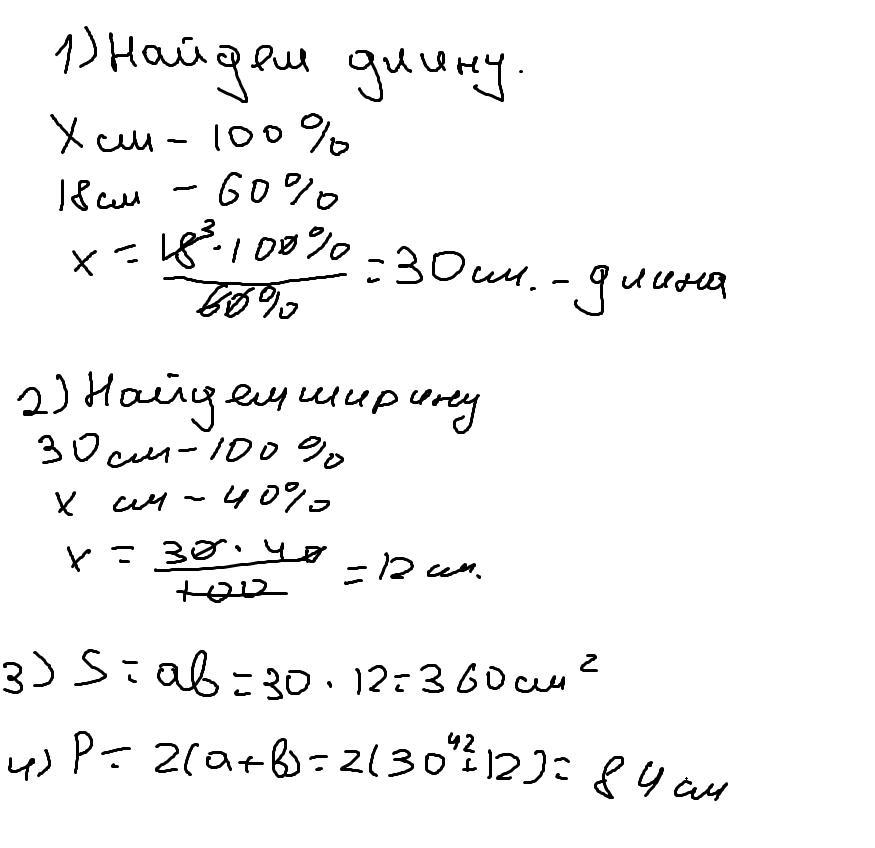 1) Найдем длину.
x см - 100%
18 см - 60%
x = 18³·100% / 60% = 30 см. - длина
2) Найдем ширину
30 см - 100%
x см - 40%
x = 30·40 / 100 = 12 см.
3) S = ab = 30·12 = 360 см²
4) P = 2(a+b) = 2(30+12)⁴² = 84 см